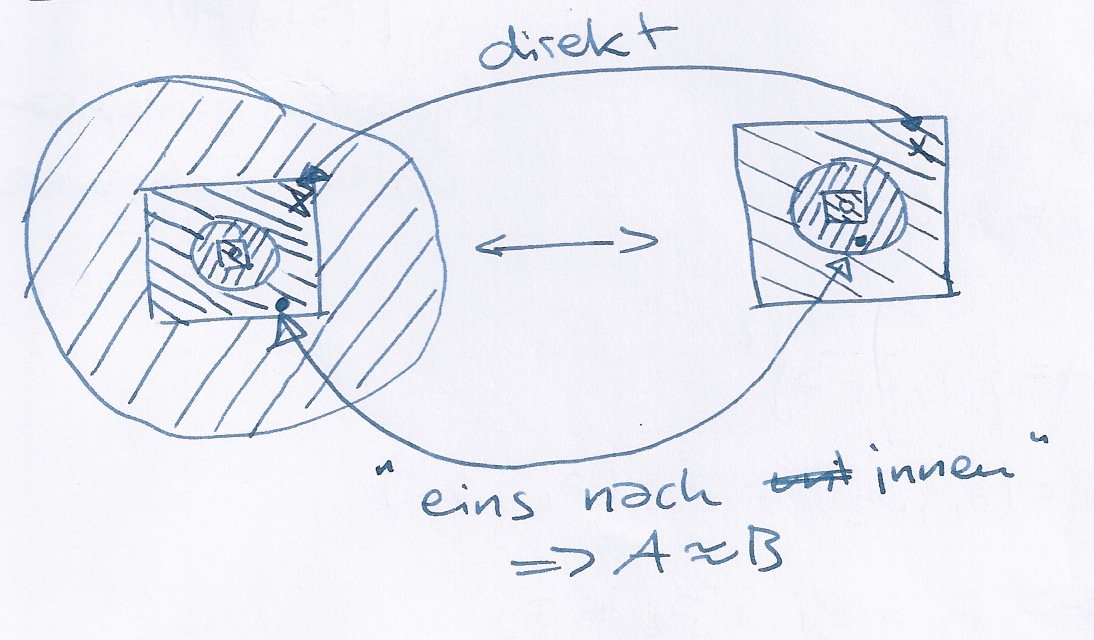 direkt
x x
"eins nach unt innen"
=> A ≈ B